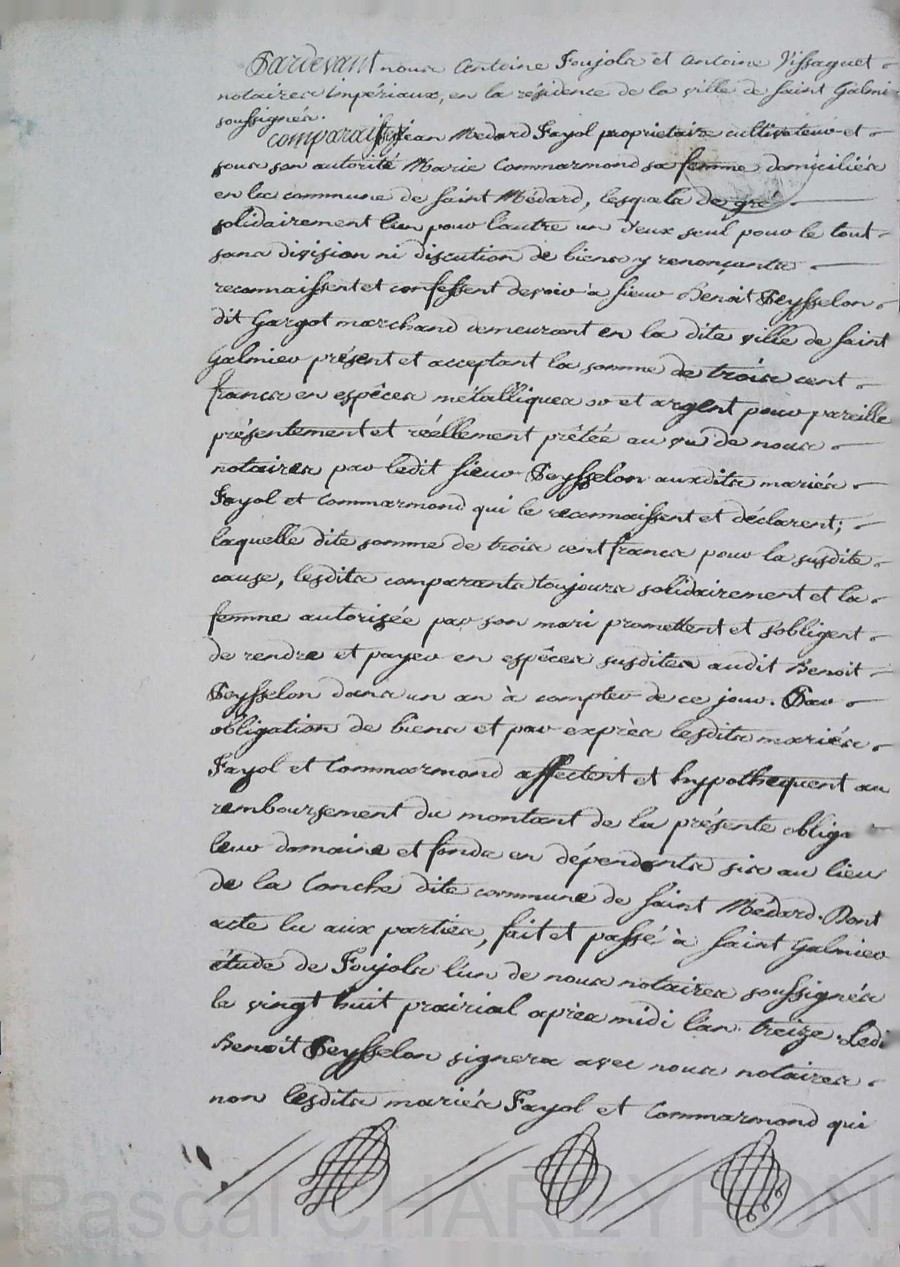 Pardevant nous Antoine Foujols et Antoine Vissaguet
notaires impériaux, en la résidence de la ville de Saint Galmi
soussignés.
comparaissent Jean Medard Fayol proprietaire cultivateur et
sous son autorité Marie Commarmond sa femme domiciliés
en la commune de Saint Médard, lesquels de gré
solidairement l'un pour l'autre un d'eux seul pour le tout
sans division ni discution de biens y renonçants
reconnaissent et confessent devoir à sieur Benoit Peysselon
dit Gargot marchand demeurant en la dite ville de Saint
Galmier présent et acceptant la somme de trois cent
francs en espèces métalliques or et argent pour pareille
présentement et réellement prêtée au vu de nous
notaires par ledit sieur Peysselon auxdits mariés
Fayol et Commarmond qui le reconnaissent et déclarent;
laquelle dite somme de trois cent francs pour la susdite
cause, lesdits comparants toujours solidairement et la
femme autorisée par son mari promettent et s'obligent
de rendre et payer en espèces susdites audit Benoit
Peysselon dans un an à compter de ce jour. Par
obligation de biens et par exprès lesdits mariés
Fayol et Commarmond affectent et hypothequent au
remboursement du montant de la présente oblig
leur domaine et fonds en dépendants sis au lieu
de la Conche dite commune de Saint Médard. Dont
acte lu aux parties, fait et passé à Saint Galmier
étude de Foujols l'un de nous notaires soussignés
le vingt huit prairial après midi l'an treize. Ledi
Benoit Peysselon signera avec nous notaires
non lesdits mariés Fayol et Commarmond qui
Pascal CHAREYRON